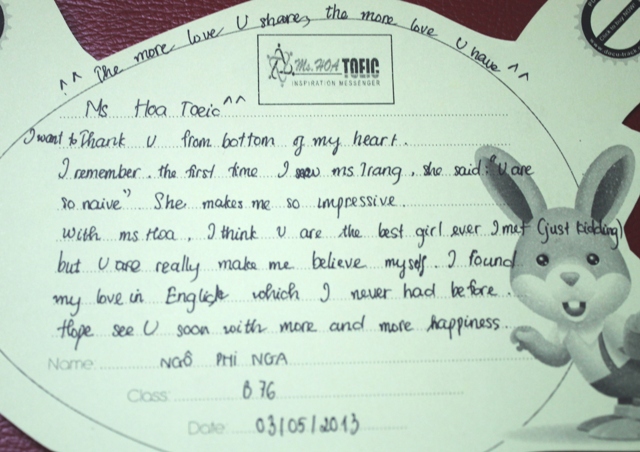 ^^ The more love U share, the more love U have ^^
Ms. HOA TOEIC
INSPIRATION MESSENGER
Ms Hoa Toeic ^^
I want to Thank U from bottom of my heart.
I remember the first time I saw ms Trang, she said: "U are
so naive" She makes me so impressive.
With ms Hoa, I think U are the best girl ever I met (just kidding)
but U are really make me believe myself. I found
my love in English which I never had before.
Hope see U soon with more and more happiness.
Name: NGÔ PHI NGA
Class: B 76
Date: 03/05/2013